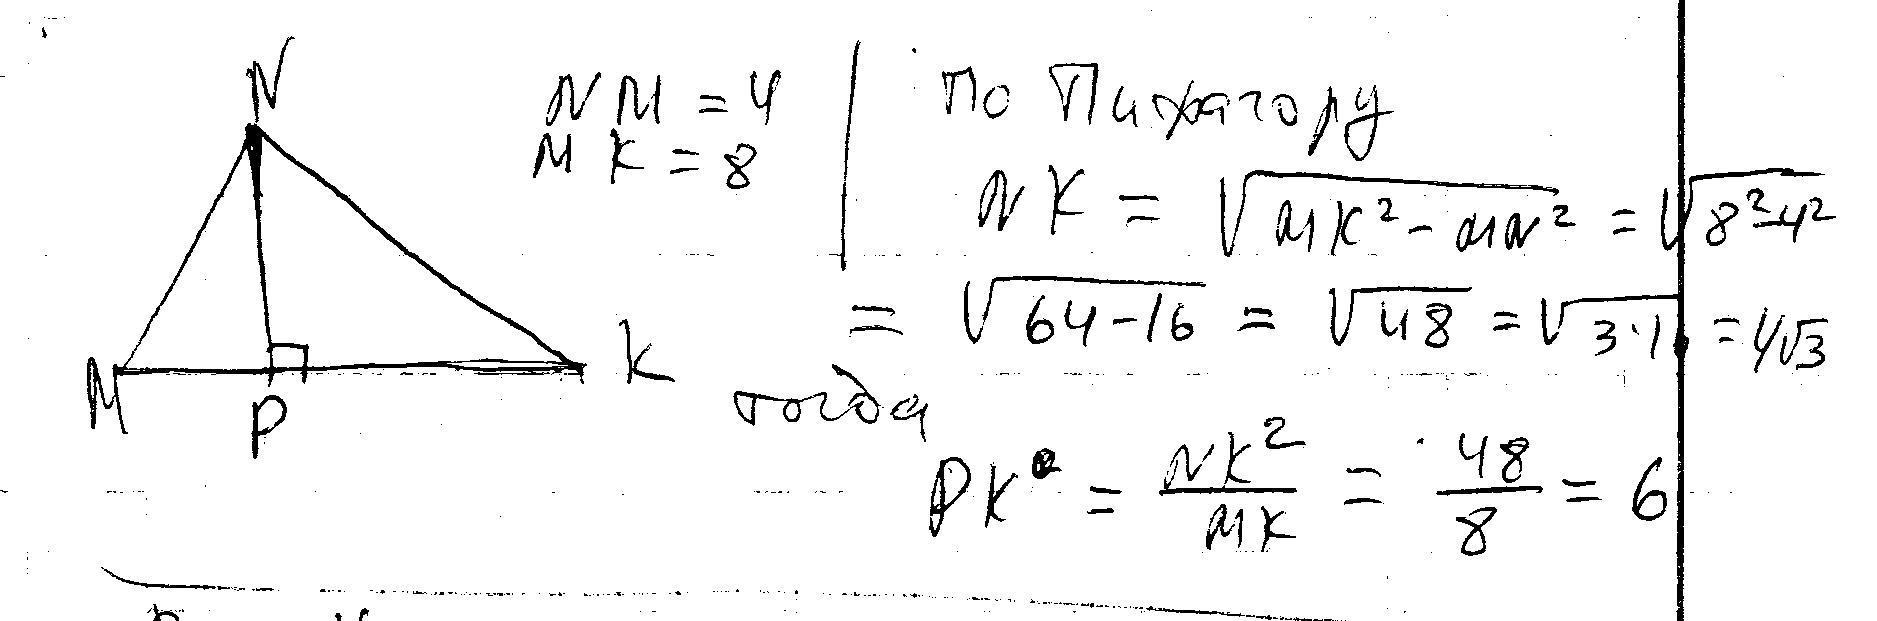 N
NM = 4
MK = 8
По Пифагору
NK = √(MK² - MN²) = √(8² - 4²)
= √(64 - 16) = √48 = √(3·16) = 4√3
M
P
K
тогда
PK = NK²/MK = 48/8 = 6